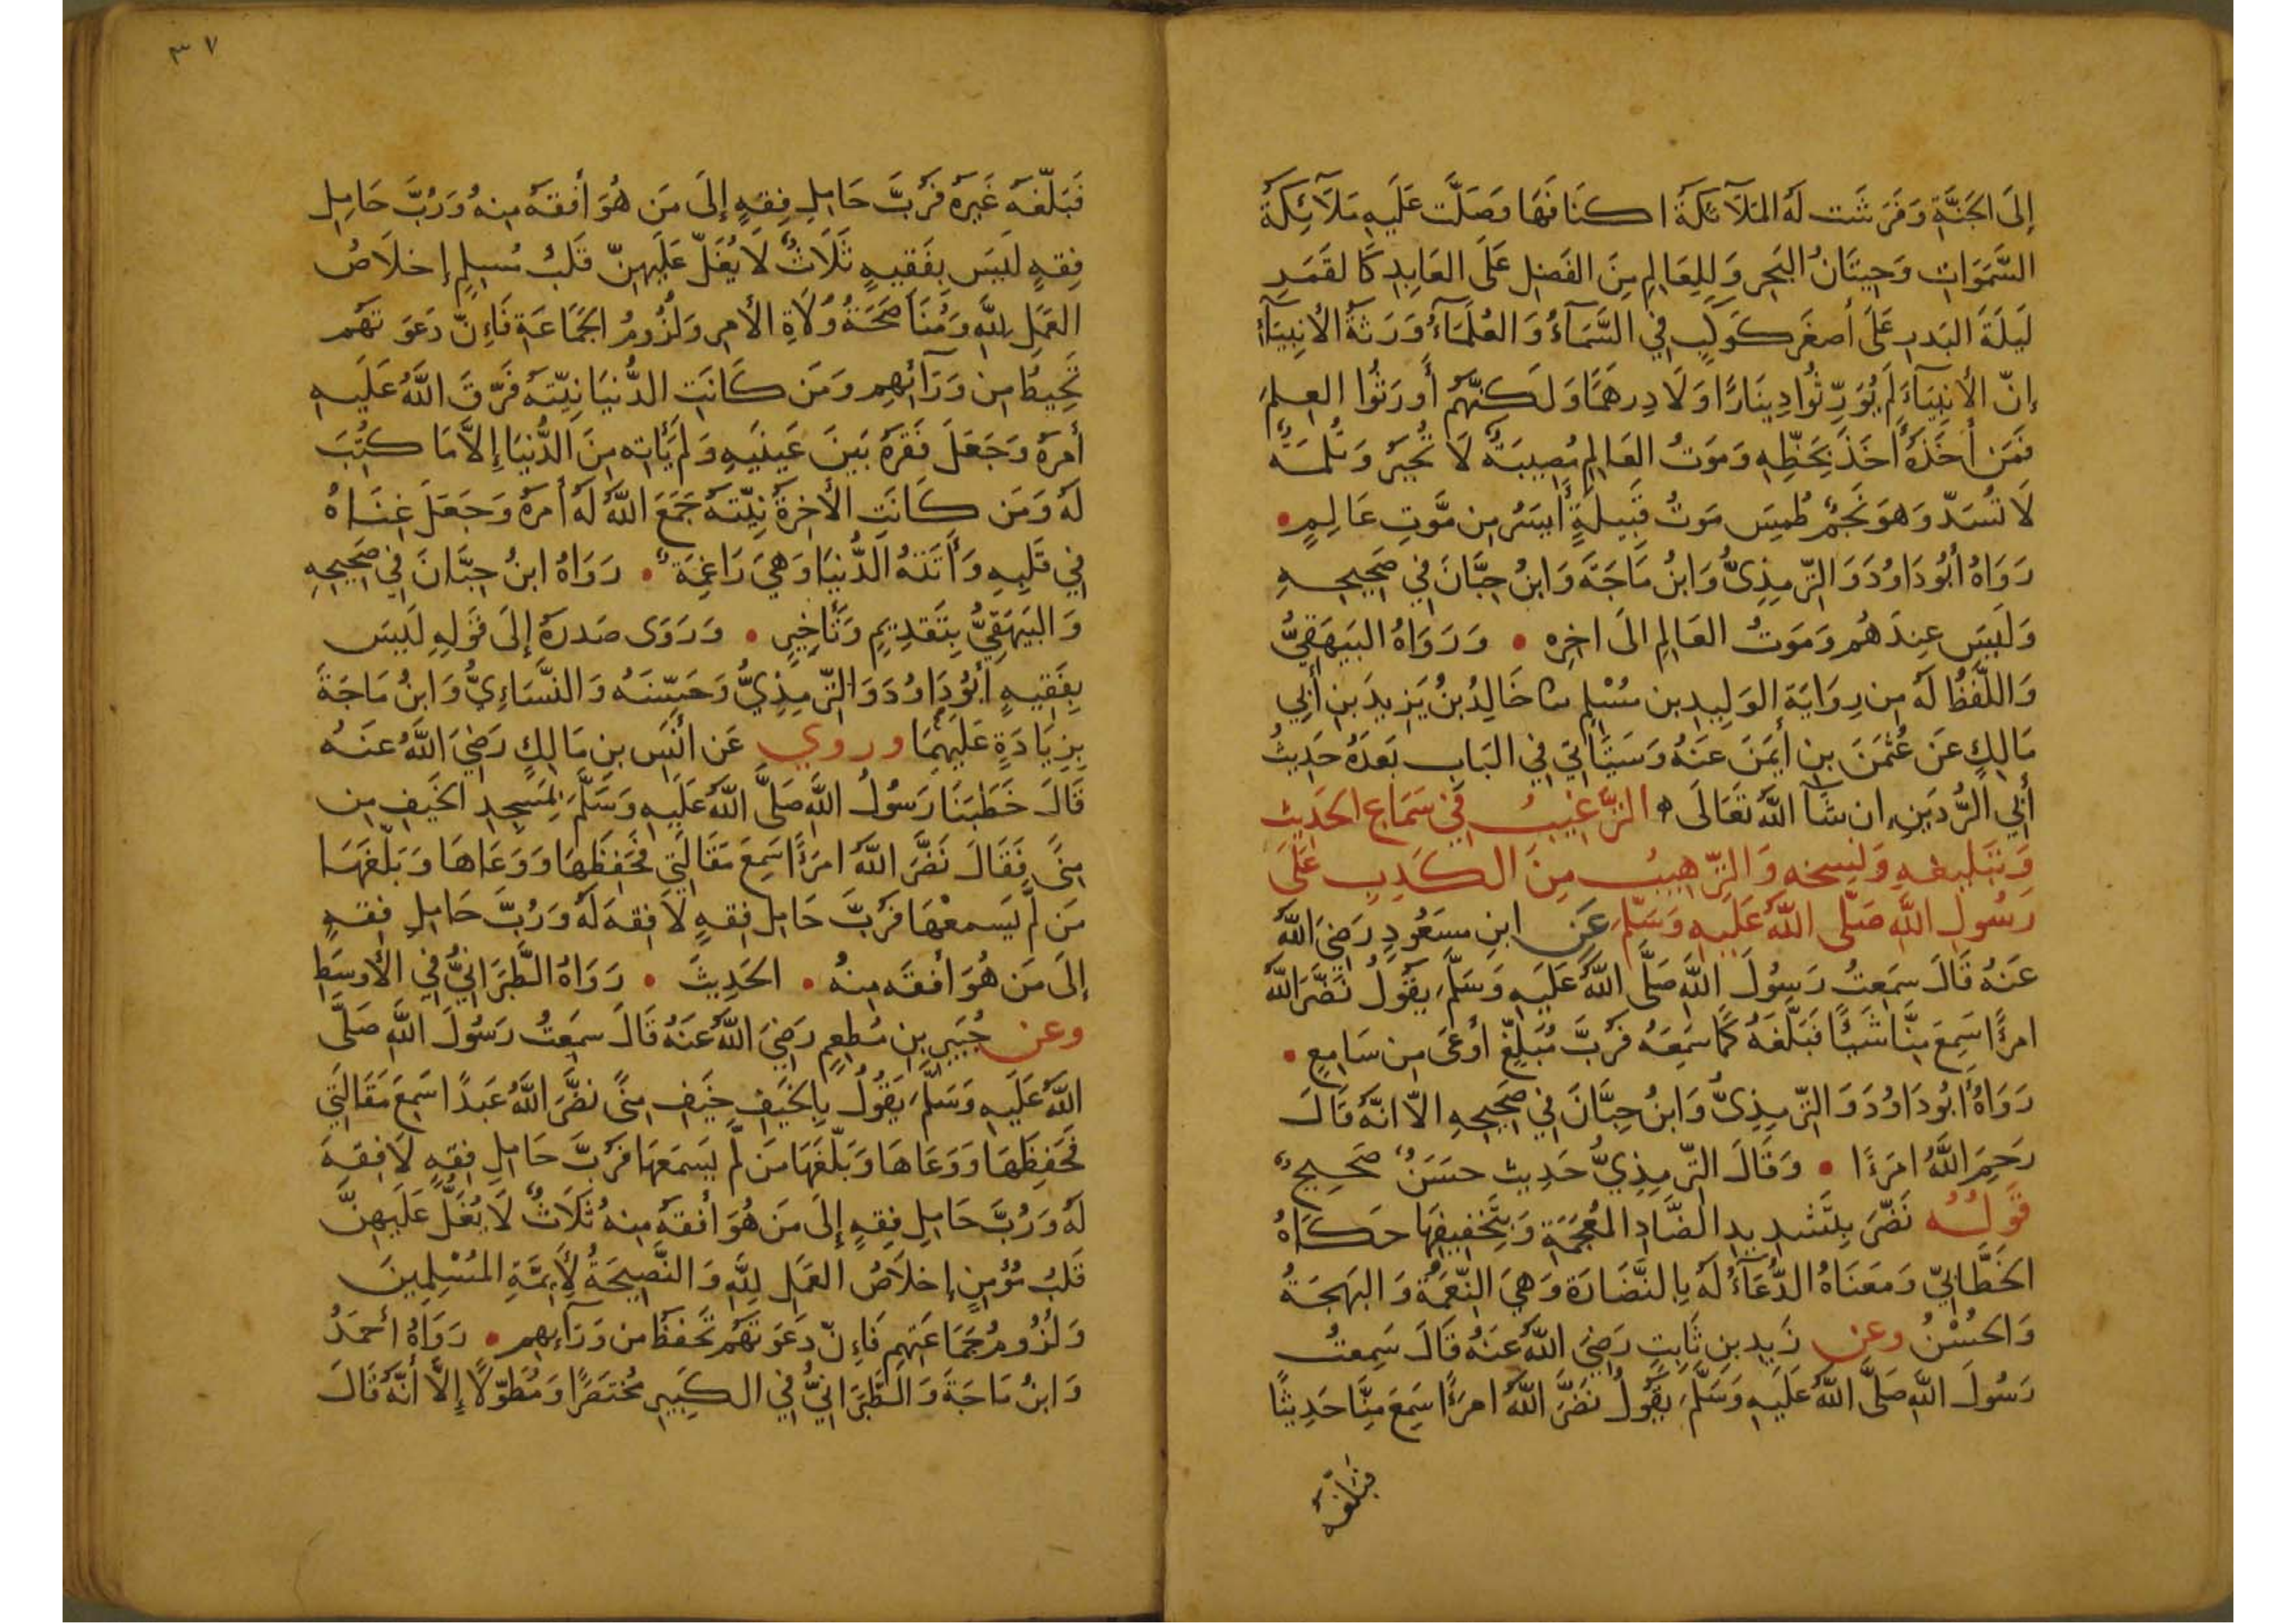 إِلَى الجَنَّةِ وَفَرَشَت لَهُ المَلَآئكَةُ اكنَافَهَا وَصَلَّت عَلَيهِ مَلَآئِكَةُ
السَّمَوَاتِ وَحِيتَانُ البَحرِ وَلِلعَالِمِ مِنَ الفَضلِ عَلَى العَابِدِ كَالقَمَرِ
لَيلَةَ البَدرِ عَلَى أَصغَرِ كَوكَبٍ فِي السَّمَآءُ وَالعُلَمَآءُ وَرَثَةُ الأَنبِيَآءُ
إِنّ الأَنبِيَآءَ لَم يُوَرِّثُوا دِينَارًا وَلَا دِرهَمًا وَلَكِنَّهُم أَورَثُوا العِلمَ
فَمَن أَخَذَهُ أَخَذَ بِحَظِّهِ وَمَوتُ العَالِمِ مُصِيبَةٌ لَا تُجبَر وَثُلمَةٌ
لَا تُسَدّ وَهوَ نَجمٌ طُمِسَ مَوتُ قَبِيلَةٍ أَيسَرُ مِن مَّوتِ عَالِمٍ •
رَوَاهُ أَبُو دَاوُدَ وَالتِّرمِذِىُّ وَابنُ مَاجَةَ وَابنُ حِبَّانَ فِي صَحِيحِهِ
وَلَيسَ عِندَهُم وَمَوتُ العَالِمِ الَى اخِرِه • وَرَوَاهُ البَيهَقِيُّ
وَاللَّفظُ لَهُ مِن رِوَايَة الوَلِيدِ بن مُسْلِمٍ ثنا خَالِدُ بنُ يَزِيدَ بنِ أَبِي
مَالِكٍ عَن عُثمٰنَ بنِ أَيمَنَ عَنهُ وَسَيَأتِي فِي البَابِ بَعدَهُ حَدِيثُ
أَبِي الرُّدَينِ ان شَآ اللّهُ تَعَالَى ه التَّرغِيبُ فِي سَمَاعِ الحَدِيثِ
وَتَبلِيغِهِ وَنَسخِهِ وَالتَّرهِيبُ مِنَ الكَذِبِ عَلَى
رَسُولِ اللّهِ صَلَّى اللّهُ عَلَيهِ وَسَلَّمَ عَنِ ابنِ مسعُودٍ رَضِيَ اللّهُ
عَنهُ قَالَ سَمِعتُ رَسُولَ اللّهِ صَلَّى اللّهُ عَلَيهِ وَسَلَّمَ يَقُولُ نَضَّرَ اللّهُ
امرَءًا سَمِعَ مِنَّا شَيئًا فَبَلَّغَهُ كَمَا سَمِعَهُ فَرُبَّ مُبَلَّغٍ أَوعَى مِن سَامِعٍ •
رَوَاهُ أَبُو دَاوُدَ وَالتِّرمِذِىُّ وَابنُ حِبَّانَ فِي صَحِيحِهِ الّا انّهُ قَالَ
رَحِمَ اللّهُ امرَءًا • وَقَالَ التِّرمِذِيُّ حَدِيث حسَنٌ صَحِيحٌ
قَولُهُ نَضَّرَ بِتَشدِيدِ الضَّادِ المُعجَمَةِ وَبِتَخفِيفِهَا حكَاهُ
الخَطَّابِيّ وَمَعنَاهُ الدُّعَآءُ لَهُ بِالنَّضَارَة وَهِيَ النِّعمَةُ وَالبَهجَةُ
وَالحُسْنُ وعن زَيدِ بنِ ثَابِتٍ رَضِيَ اللّهُ عَنهُ قَالَ سَمِعتُ
رَسُولَ اللّهِ صَلَّى اللّهُ عَلَيهِ وَسَلَّمَ يَقُولُ نَضَّرَ اللّهُ امرَءًا سَمِعَ مِنَّا حَدِيثًا
فَبَلَّغَهُ
٣٧
فَبَلَّغَهُ غَيرَهُ فَرُبَّ حَامِلِ فِقهٍ إِلَى مَن هُوَ أَفقَهُ مِنهُ وَرُبَّ حَامِلِ
فِقهٍ لَيسَ بِفَقِيهٍ ثَلَاثٌ لَا يُغَلّ عَلَيهِنّ قَلبُ مُسلِمٍ إِخلَاصُ
العَمَلِ لِلّهِ وَمُنَاصَحَةُ وُلَاةِ الأَمرِ وَلُزُومُ الجَمَاعَةِ فَإِنّ دَعوَتَهُم
تُحِيطُ مِن وَرَآئِهِم وَمَن كَانَت الدُّنيَا نِيّتَهُ فَرّقَ اللّهُ عَلَيهِ
أَمرَهُ وَجَعَلَ فَقرَهُ بَينَ عَينَيهِ وَلَم يَأتِهِ مِنَ الدُّنيَا إِلَّا مَا كُتِبَ
لَهُ وَمَن كَانَتِ الأَخِرَةُ نِيّتَهُ جَمَعَ اللّهُ لَهُ أَمرَهُ وَجَعَلَ غِنَاهُ
فِي قَلبِهِ وَأَتَتهُ الدُّنيَا وَهِيَ رَاغِمَةٌ • رَوَاهُ ابنُ حِبَّانَ فِي صَحِيحِهِ
وَالبَيهَقِيُّ بِتَقدِيمٍ وَتَأخِيرٍ • وَرَوَى صَدرَهُ إِلَى قَولِهِ لَيسَ
بِفَقِيهٍ أَبُو دَاوُدَ وَالتِّرمِذِيُّ وَحَسّنَهُ وَالنَّسَاءِيُّ وَابنُ مَاجَةَ
بِزِيَادَةٍ عَلَيهِمَا وروي عَن أَنَسِ بنِ مَالِكٍ رَضِيَ اللّهُ عَنهُ
قَالَ خَطَبَنَا رَسُولُ اللّهِ صَلَّى اللّهُ عَلَيهِ وَسَلَّمَ بِمَسجِدِ الخَيفِ مِن
مِنًى فَقَالَ نَضَّرَ اللّهُ امرَءًا سَمِعَ مَقَالَتِي فَحَفِظَهَا وَوَعَاهَا وَبَلّغَهَا
مَن لَّم يَسمَعْهَا فَرُبَّ حَامِلِ فِقهٍ لَا فِقهَ لَهُ وَرُبَّ حَامِلِ فِقهٍ
إِلَى مَن هُوَ أَفقَه مِنهُ • الحَدِيثَ • رَوَاهُ الطَّبَرَانِيُّ فِي الأَوسَطِ
وعن جُبَيرِ بنِ مُطعِمٍ رَضِيَ اللّهُ عَنهُ قَالَ سَمِعتُ رَسُولَ اللّهِ صَلَّى
اللّهُ عَلَيهِ وَسَلَّمَ يَقُولُ بِالخَيفِ خَيفِ مِنًى نَضَّرَ اللّهُ عَبدًا سَمِعَ مَقَالَتِي
فَحَفِظَهَا وَوَعَاهَا وَبَلَّغَهَا مَن لَّم يَسمَعهَا فَرُبَّ حَامِلِ فِقهٍ لَا فِقهَ
لَهُ وَرُبَّ حَامِلِ فِقهٍ إِلَى مَن هُوَ أَفقَهُ مِنهُ ثَلَاثٌ لَا يُغَلُّ عَلَيهِنَّ
قَلبُ مُؤمِنٍ إِخلَاصُ العَمَلِ لِلّهِ وَالنَّصِيحَةُ لِأَئِمَّةِ المُسْلِمِينَ
وَلُزُومُ جَمَاعَتِهِم فَإِنّ دَعوَتَهُم تَحفَظُ مِن وَرَآءِهِم • رَوَاهُ أَحمَدُ
وَابنُ مَاجَةَ وَالطَّبَرَانِيُّ فِي الكَبِيرِ مُختَصَرًا وَمُطَوّلًا إِلَّا أَنَّهُ قَالَ